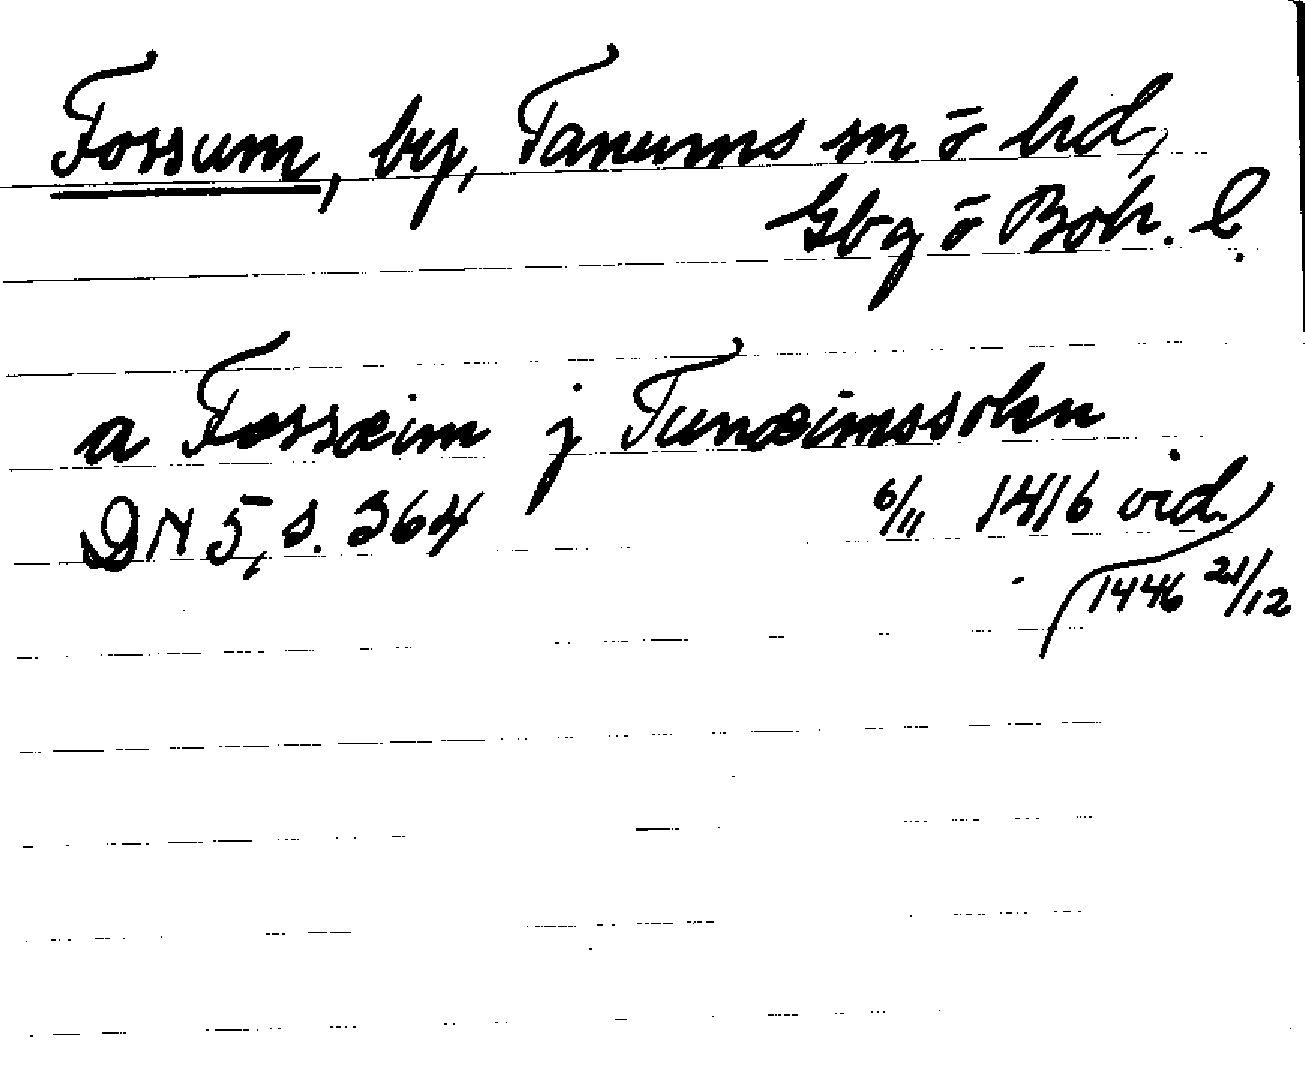 Fossum, by, Tanums sn o hd,
Gbg o Boh. l.
a Fossæim j Tunæimssokn
DN 5, s. 364 6/11 1416 vid.
1446 21/12